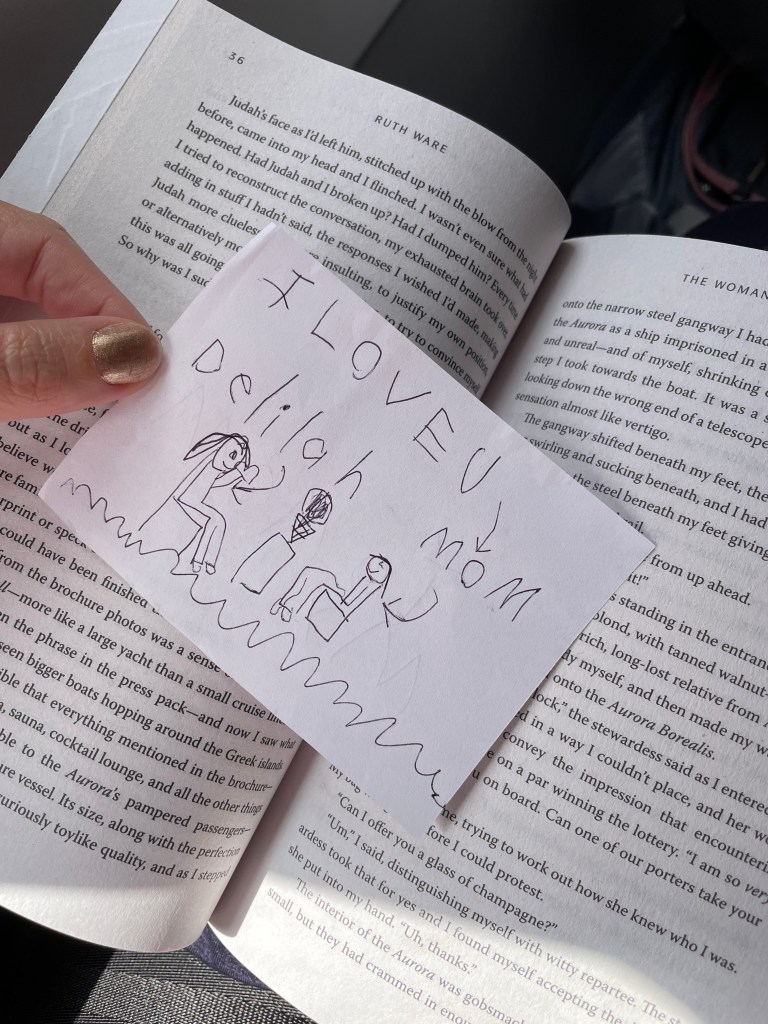 36
RUTH WARE
Judah's face as I'd left him, stitched up with the blow from the night
before, came into my head and I flinched. I wasn't even sure what had
happened. Had Judah and I broken up? Had I dumped him? Every time
I tried to reconstruct the conversation, my exhausted brain took over
adding in stuff I hadn't said, the responses I wished I'd made, making
Judah more clueles insulting, to justify my own position,
or alternatively to try to convince myself
this was all going
So why was I
I LOVE U
Delilah
MOM
out as I
believe
could have been finished
from the brochure photos was a sense
—more like a large yacht than a small cruise
the phrase in the press pack—and now I saw what
seen bigger boats hopping around the Greek islands
that everything mentioned in the brochure—
sauna, cocktail lounge, and all the other things
to the Aurora's pampered passengers—
vessel. Its size, along with the perfection
toylike quality, and as I stepped
THE WOMAN
onto the narrow steel gangway I had
the Aurora as a ship imprisoned in a
and unreal—and of myself, shrinking
step I took towards the boat. It was a
looking down the wrong end of a telescope
sensation almost like vertigo.
The gangway shifted beneath my feet, the
swirling and sucking beneath, and I had
the steel beneath my feet giving
from up ahead.
it!"
standing in the entran
blond, with tanned walnut-
rich, long-lost relative from
myself, and then made my w
onto the Aurora Borealis.
lock," the stewardess said as I entered
in a way I couldn't place, and her
convey the impression that encounteri
on a par winning the lottery. "I am so very
on board. Can one of our porters take your
trying to work out how she knew who I was.
fore I could protest.
"Can I offer you a glass of champagne?"
"Um," I said, distinguishing myself with witty repartee. The st
ardess took that for yes and I found myself accepting the
she put into my hand. "Uh, thanks."
The interior of the Aurora was gobsmack
small, but they had crammed in enou